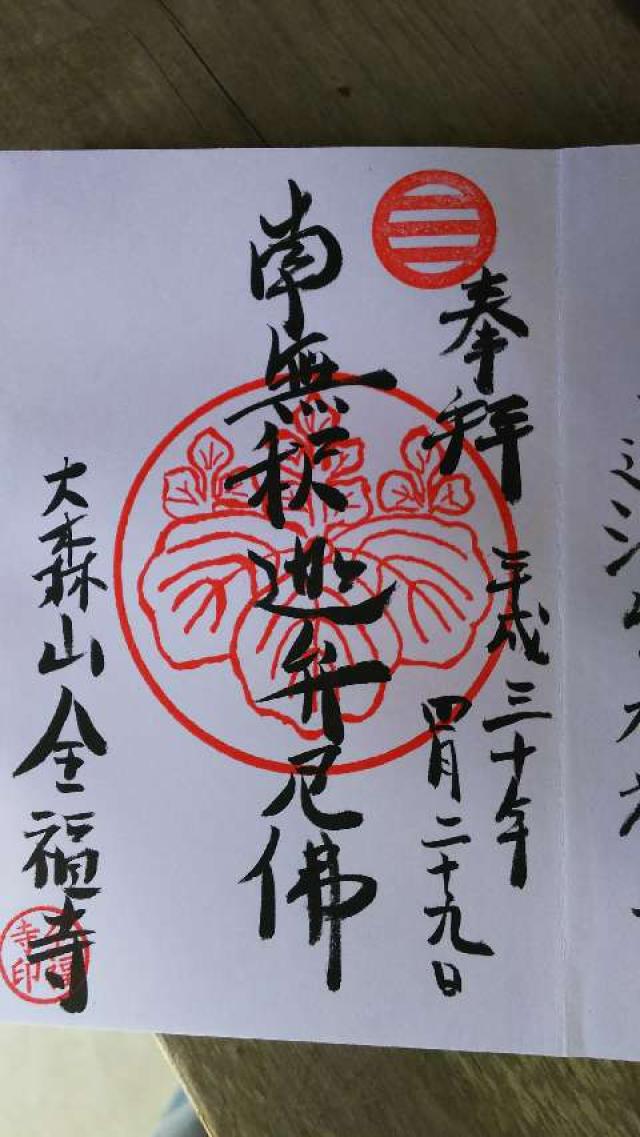 奉拝
平成三十年
四月二十九日
南無釈迦牟尼佛
大森山全福寺
全福
寺印